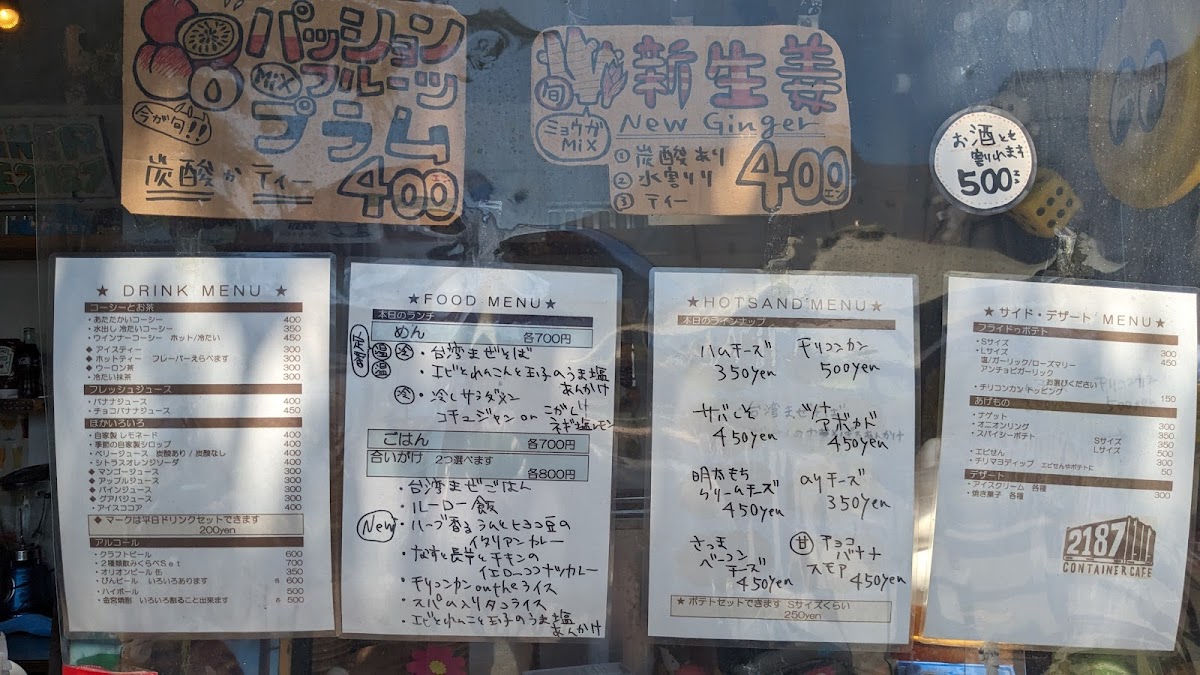 パッション
MiX フルーツ
プラム
今が旬!!
炭酸 か ティー 400エン
旬 新生姜
ミョウガ MiX
New Ginger
① 炭酸あり
② 水割り
③ ティー
400エン
お酒とも
割れます
500エン
★ DRINK MENU ★
コーシーとお茶
・あたたかいコーシー 400
・水出し 冷たいコーシー 350
・ウインナーコーシー ホット/冷たい 450
◆ アイスティー 300
◆ ホットティー フレーバーえらべます 300
◆ ウーロン茶 300
・冷たい抹茶 350
フレッシュジュース
・バナナジュース 400
・チョコバナナジュース 450
ほかいろいろ
・自家製 レモネード 400
・季節の自家製シロップ 400
・ベリージュース 炭酸あり / 炭酸なし 400
・シトラスオレンジソーダ 400
◆ マンゴージュース 300
◆ アップルジュース 300
◆ パインジュース 300
◆ グアバジュース 300
・アイスココア 400
◆ マークは平日ドリンクセットできます
200yen
アルコール
・クラフトビール 600
・2種類飲みくらべSet 700
・オリオンビール 缶 350
・びんビール いろいろあります 600
・ハイボール 500
・金宮焼酎 いろいろ割ること出来ます 500
★FOOD MENU★
本日のランチ
めん 各700円
温 冷 ・台湾まぜそば
温 ・エビとれんこんと玉子のうま塩
あんかけ
冷 ・冷しサラダメン
コチュジャン or こがし
ネギ塩レモン
ごはん 各700円
合いがけ 2つ選べます
各800円
・台湾まぜごはん
・ルーロー飯
New ・ハーブ香るラムとヒヨコ豆の
イタリアンカレー
・なすと長芋とチキンの
イエローココナツカレー
・チリコンカン onthe ライス
・スパム入りタコライス
・エビとれんこんと玉子のうま塩
あんかけ
★HOTSAND MENU★
本日のラインナップ
ハムチーズ
350yen
チリコンカン
500yen
サバしそ
450yen
ツナ
アボカド
450yen
明太もち
クリームチーズ
450yen
オリチーズ
350yen
さつま
ベーコン
チーズ
450yen
甘 チョコ
バナナ
スモア 450yen
★ ポテトセットできます Sサイズくらい
250yen
★ サイド・デザート MENU ★
フライドゥポテト
・Sサイズ 300
・Lサイズ 450
塩/ガーリック/ローズマリー
アンチョビガーリック
お選びください
・チリコンカン トッピング 150
あげもの
・ナゲット 300
・オニオンリング 300
・スパイシーポテト Sサイズ 350
Lサイズ 500
・エビせん 300
・チリマヨディップ エビせんやポテトに 50
デザート
・アイスクリーム 各種
・焼き菓子 各種 300
2187
CONTAINER CAFE